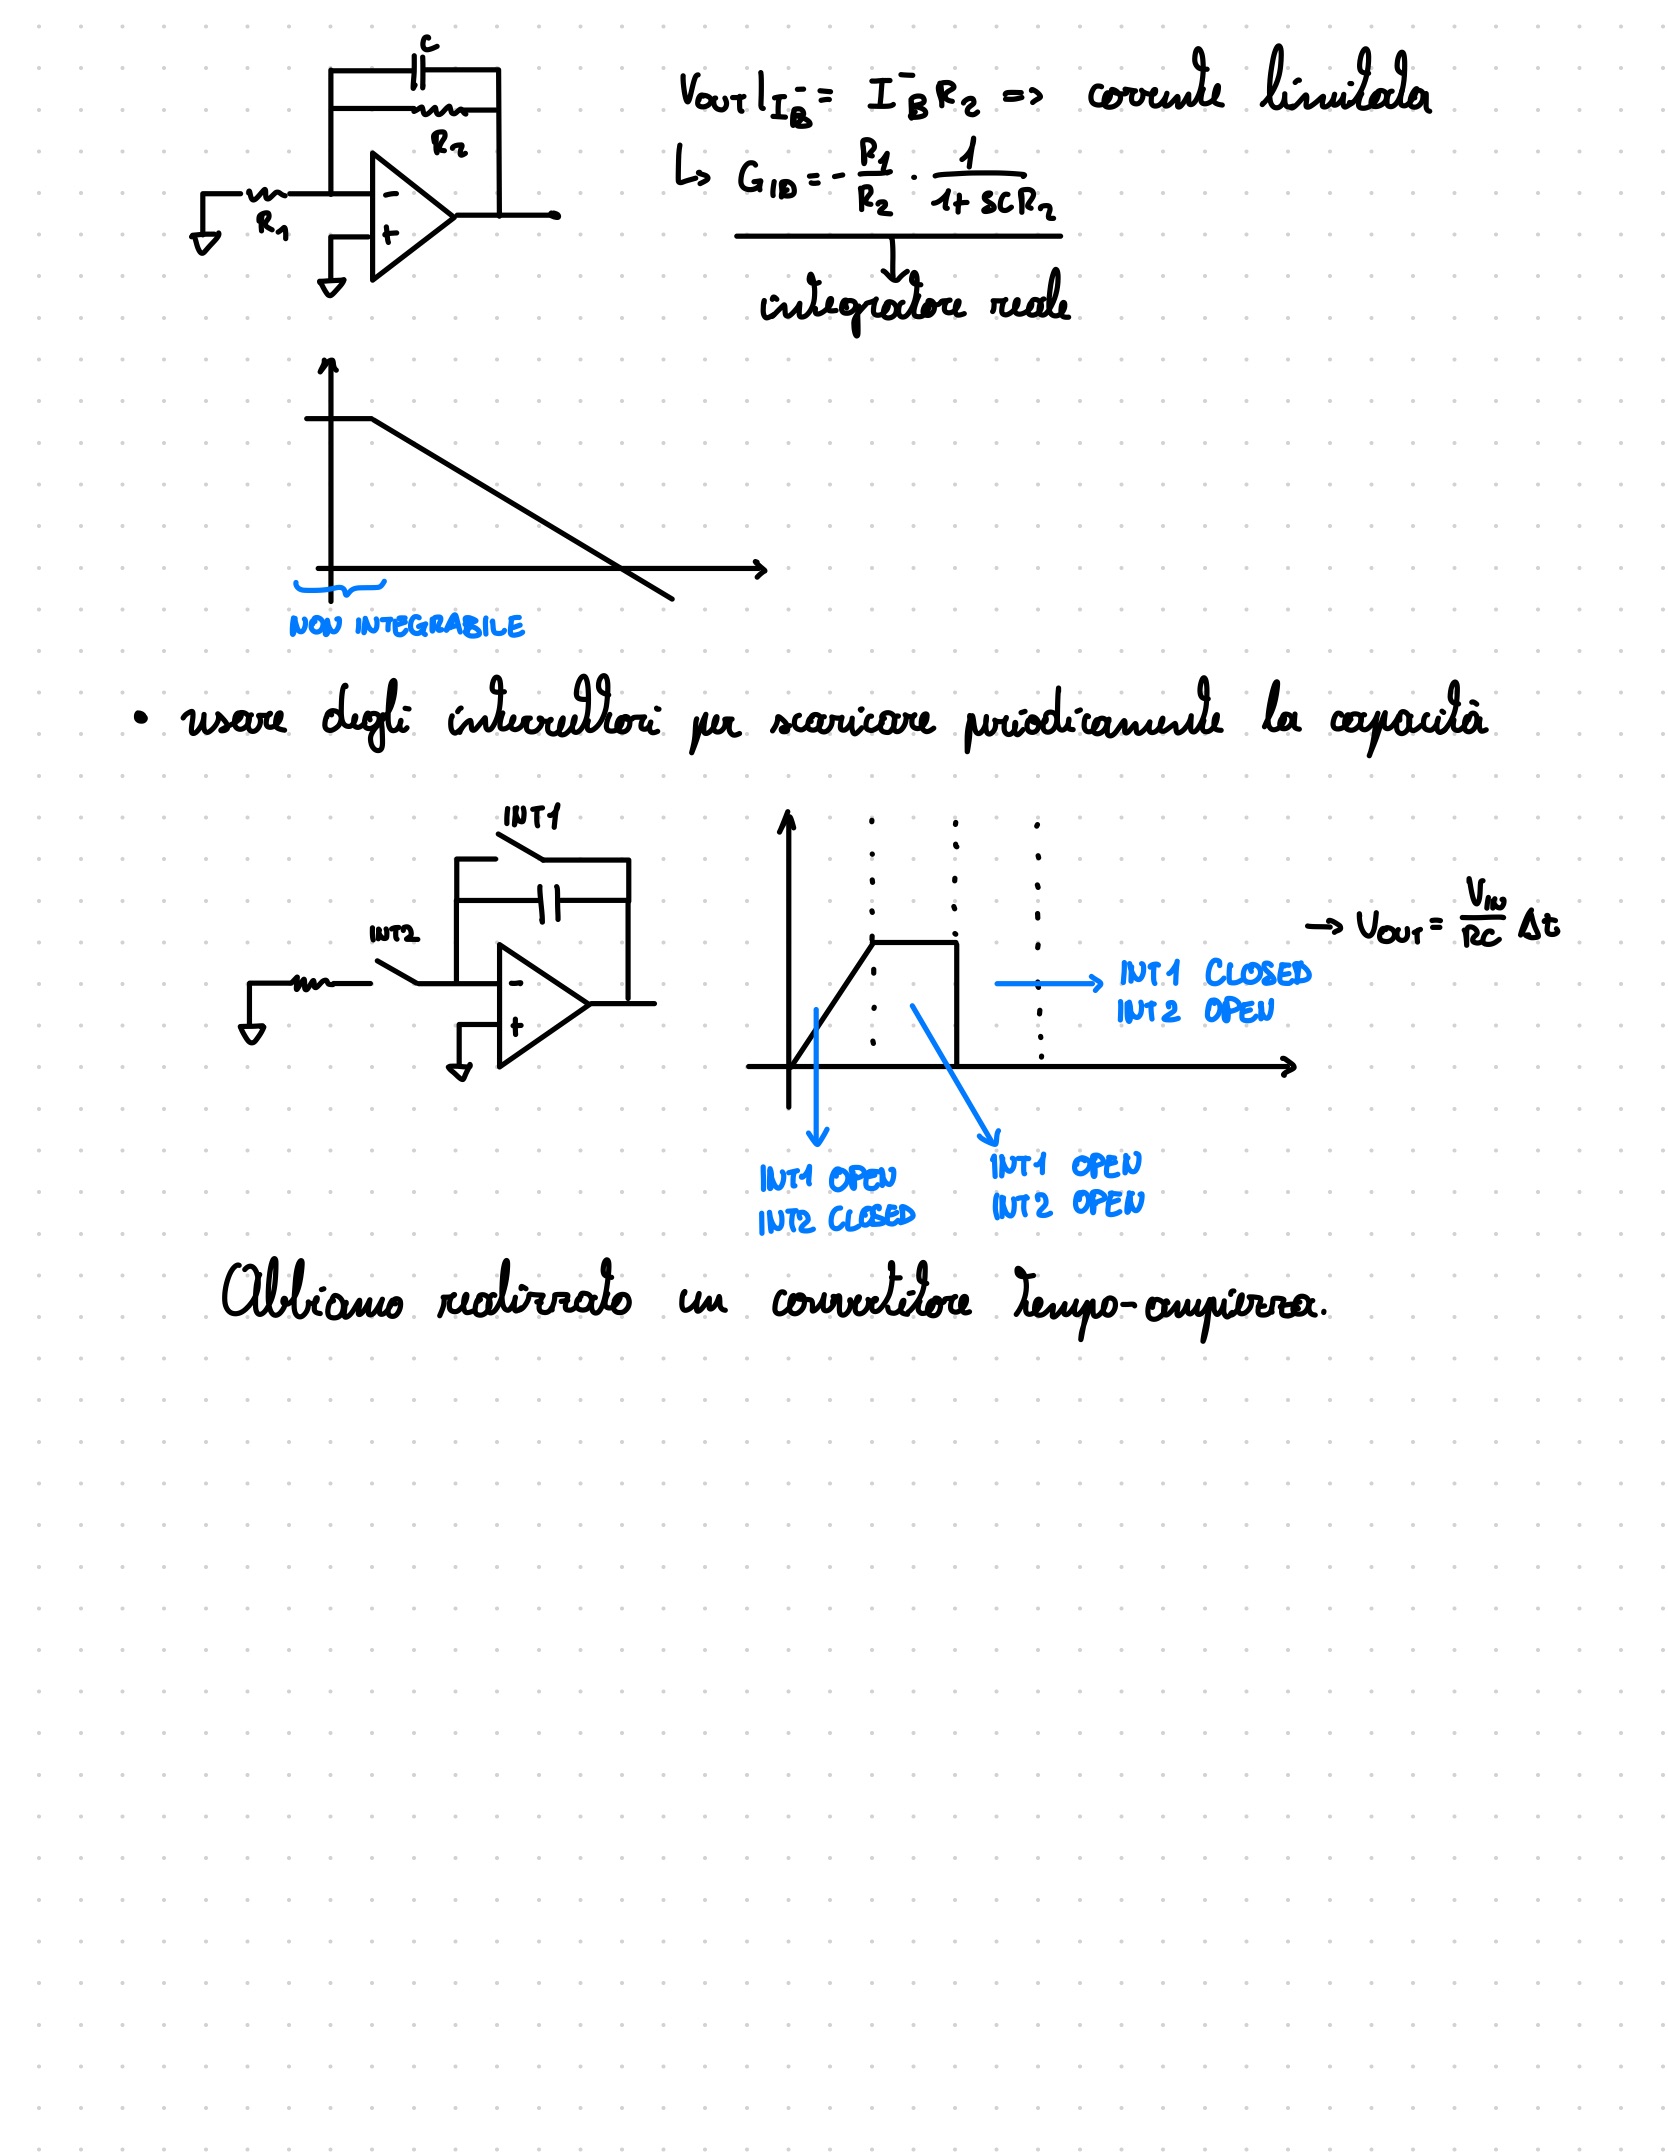 C
R₂
R₁
-
+
V_OUT|_I_B⁻ = I⁻_B R₂ => corrente limitata
↳ G_ID = - R₁/R₂ · 1/(1+ sCR₂)
integratore reale
NON INTEGRABILE
• usare degli interruttori per scaricare periodicamente la capacità
INT1
INT2
-
+
→ V_OUT = V_IN/RC Δt
INT1 CLOSED
INT2 OPEN
INT1 OPEN
INT2 CLOSED
INT1 OPEN
INT2 OPEN
Abbiamo realizzato un convertitore tempo-ampiezza.